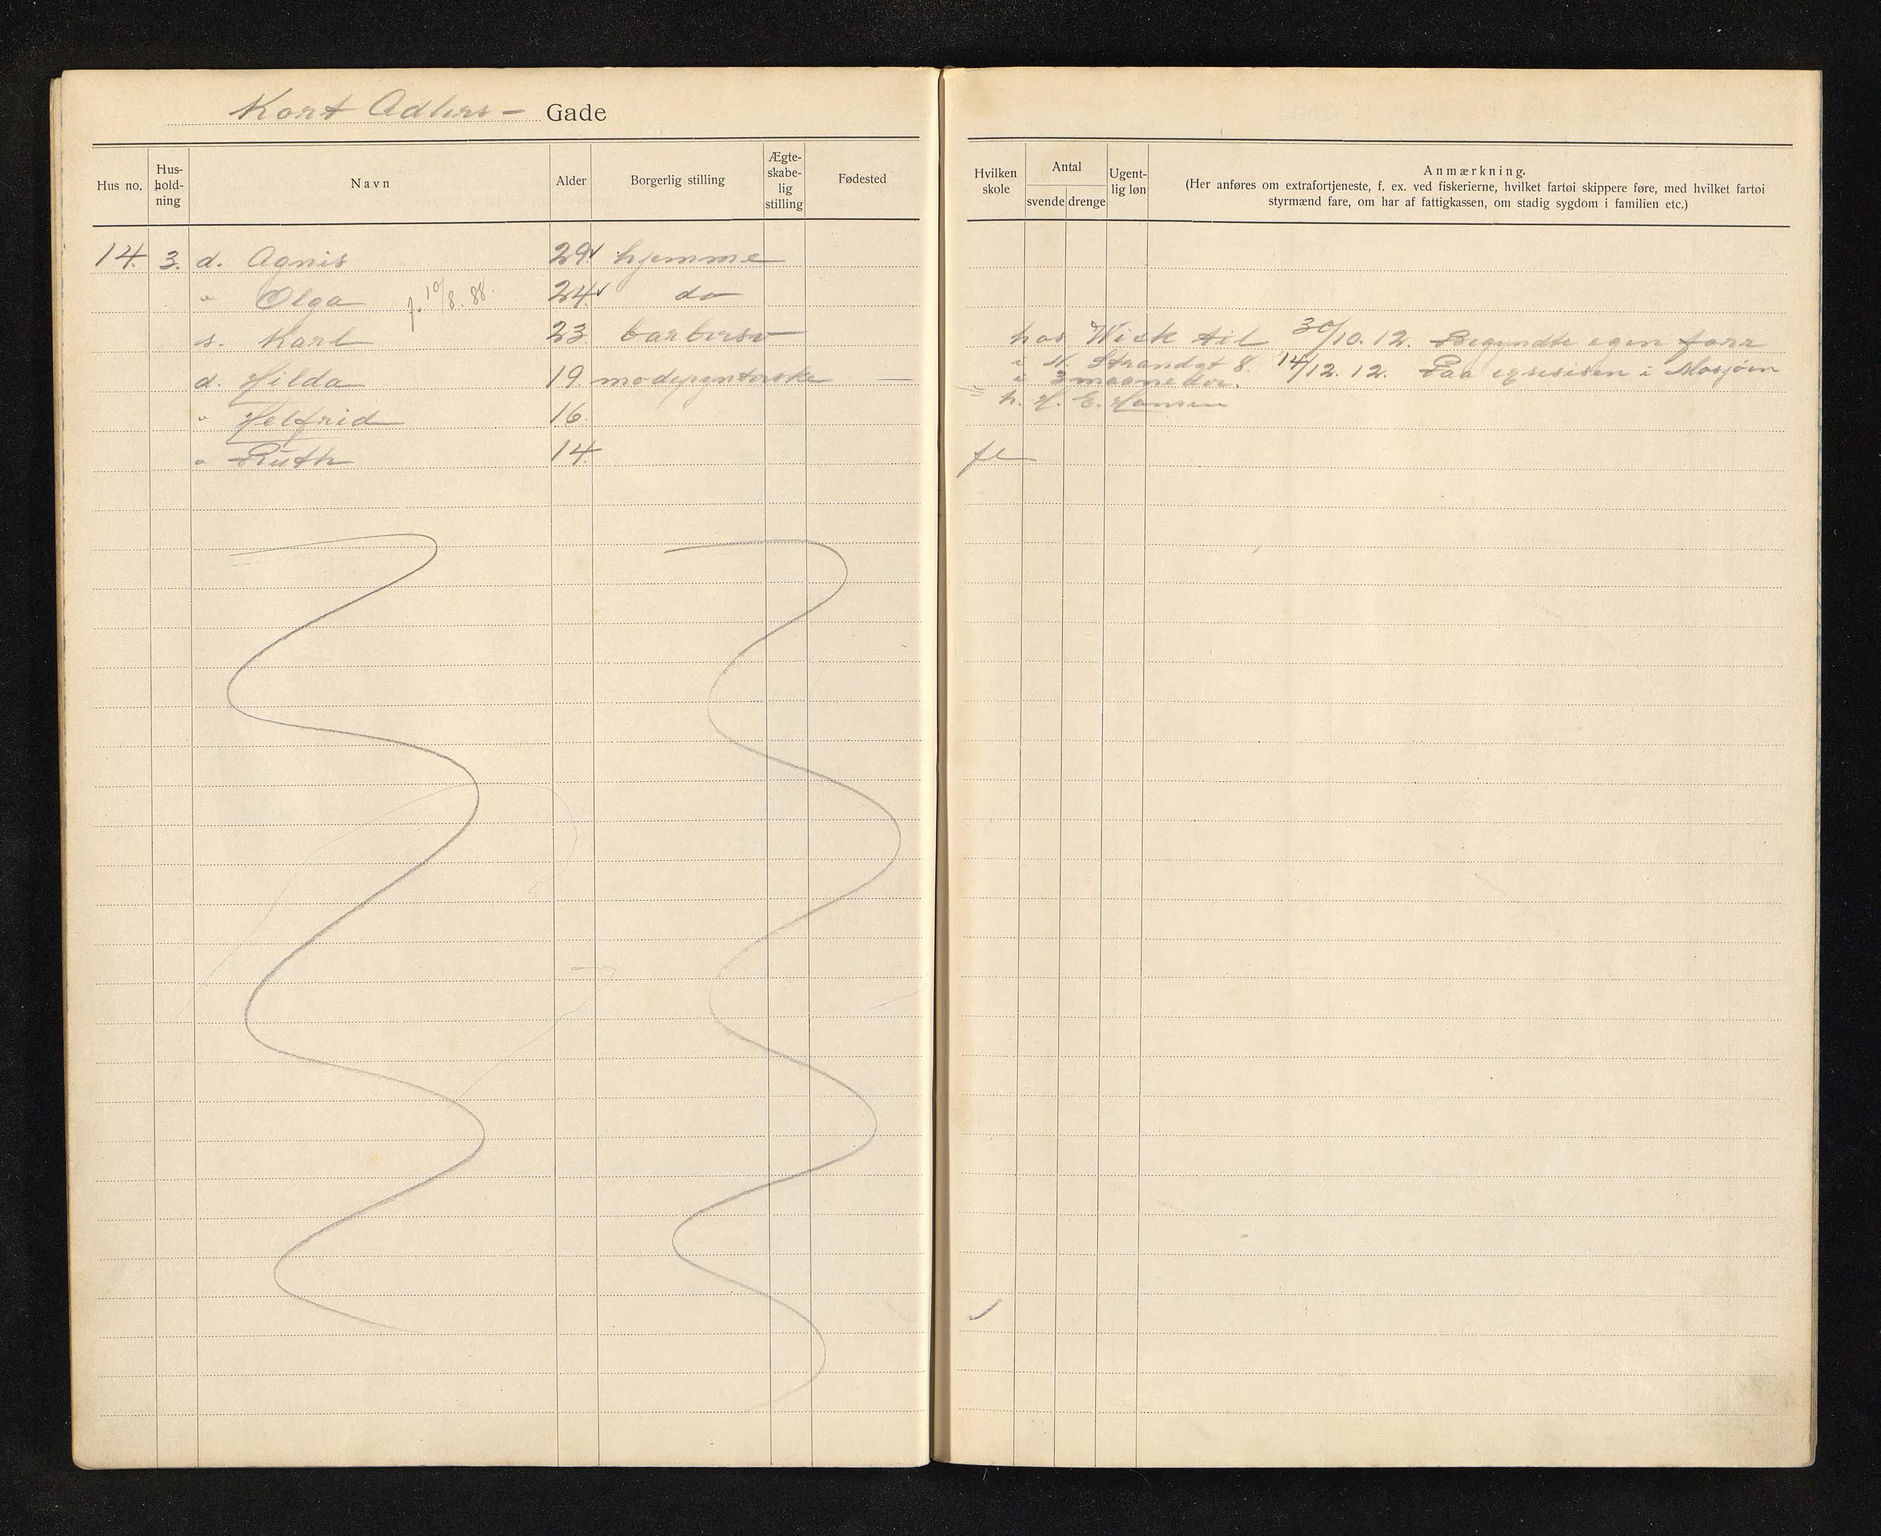 Kort Adlers - Gade
Hus no. Hus- hold- ning Navn Alder Borgerlig stilling Ægte- skabe- lig stilling Fødested
14. 3. d. Agnis 29 hjemme
" Olga f. 10/8. 88. 24 do
s. Karl 23 barbersv
d. Hilda 19. modepynterske —
" Helfrid 16.
" Ruth 14.
Hvilken skole Antal svende drenge Ugent- lig løn Anmærkning.
(Her anføres om extrafortjeneste, f. ex. ved fiskerierne, hvilket fartøi skippere føre, med hvilket fartøi
styrmænd fare, om har af fattigkassen, om stadig sygdom i familien etc.)
hos Wick til 30/10. 12. Begyndte egen forr
i N. Strandgt 8. 14/12. 12. Paa i Mosjøen
i 3 maaneder.
h. H. E. Hansen
fl